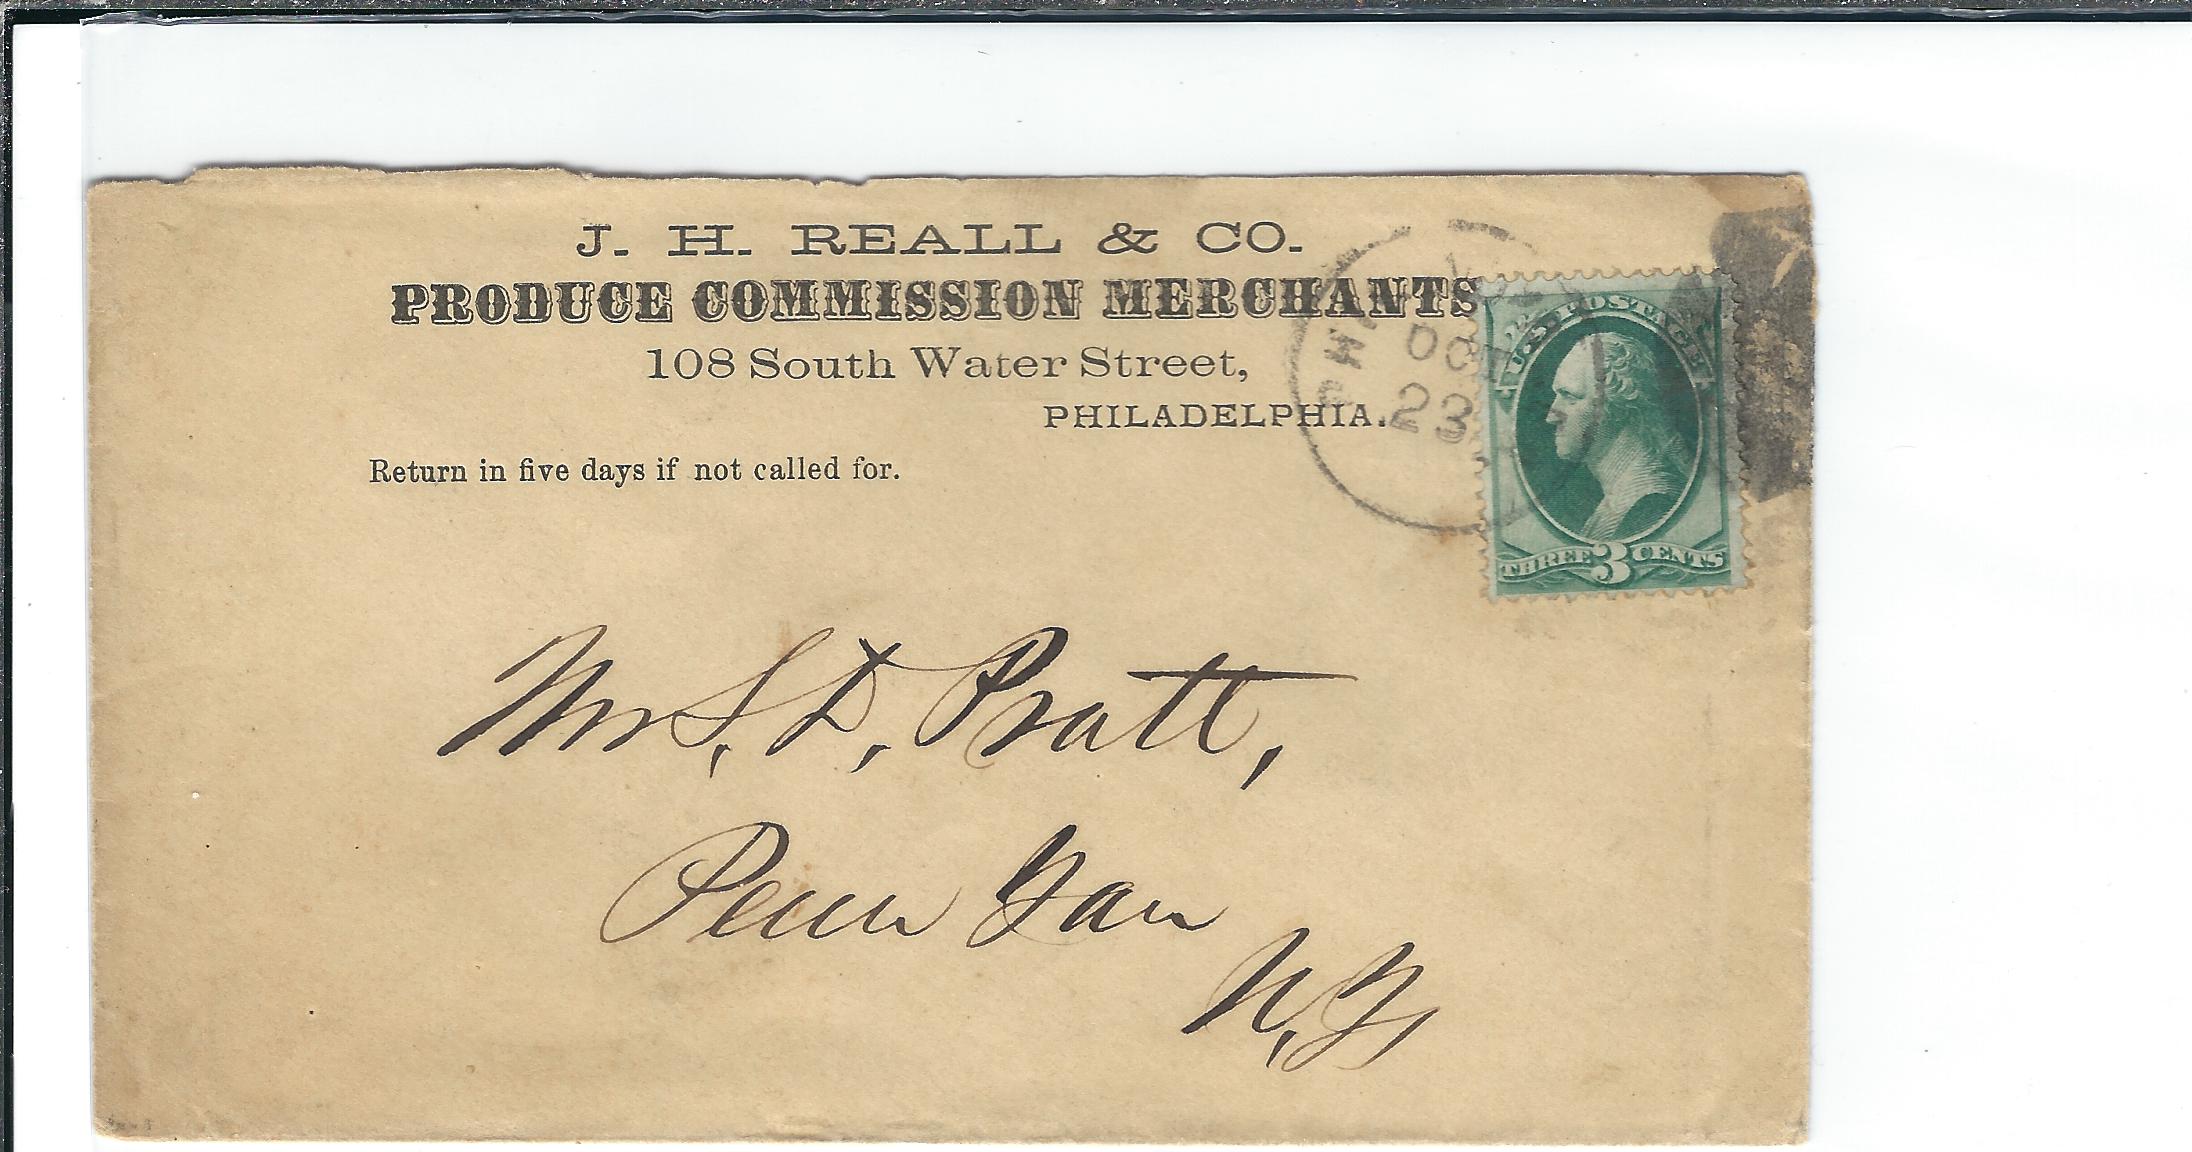 J. H. REALL & CO.
PRODUCE COMMISSION MERCHANTS
108 South Water Street,
PHILADELPHIA.
Return in five days if not called for.
OCT
23
U.S. POSTAGE
THREE 3 CENTS
Mr. S. D. Pratt,
Penn Yan
N.Y.